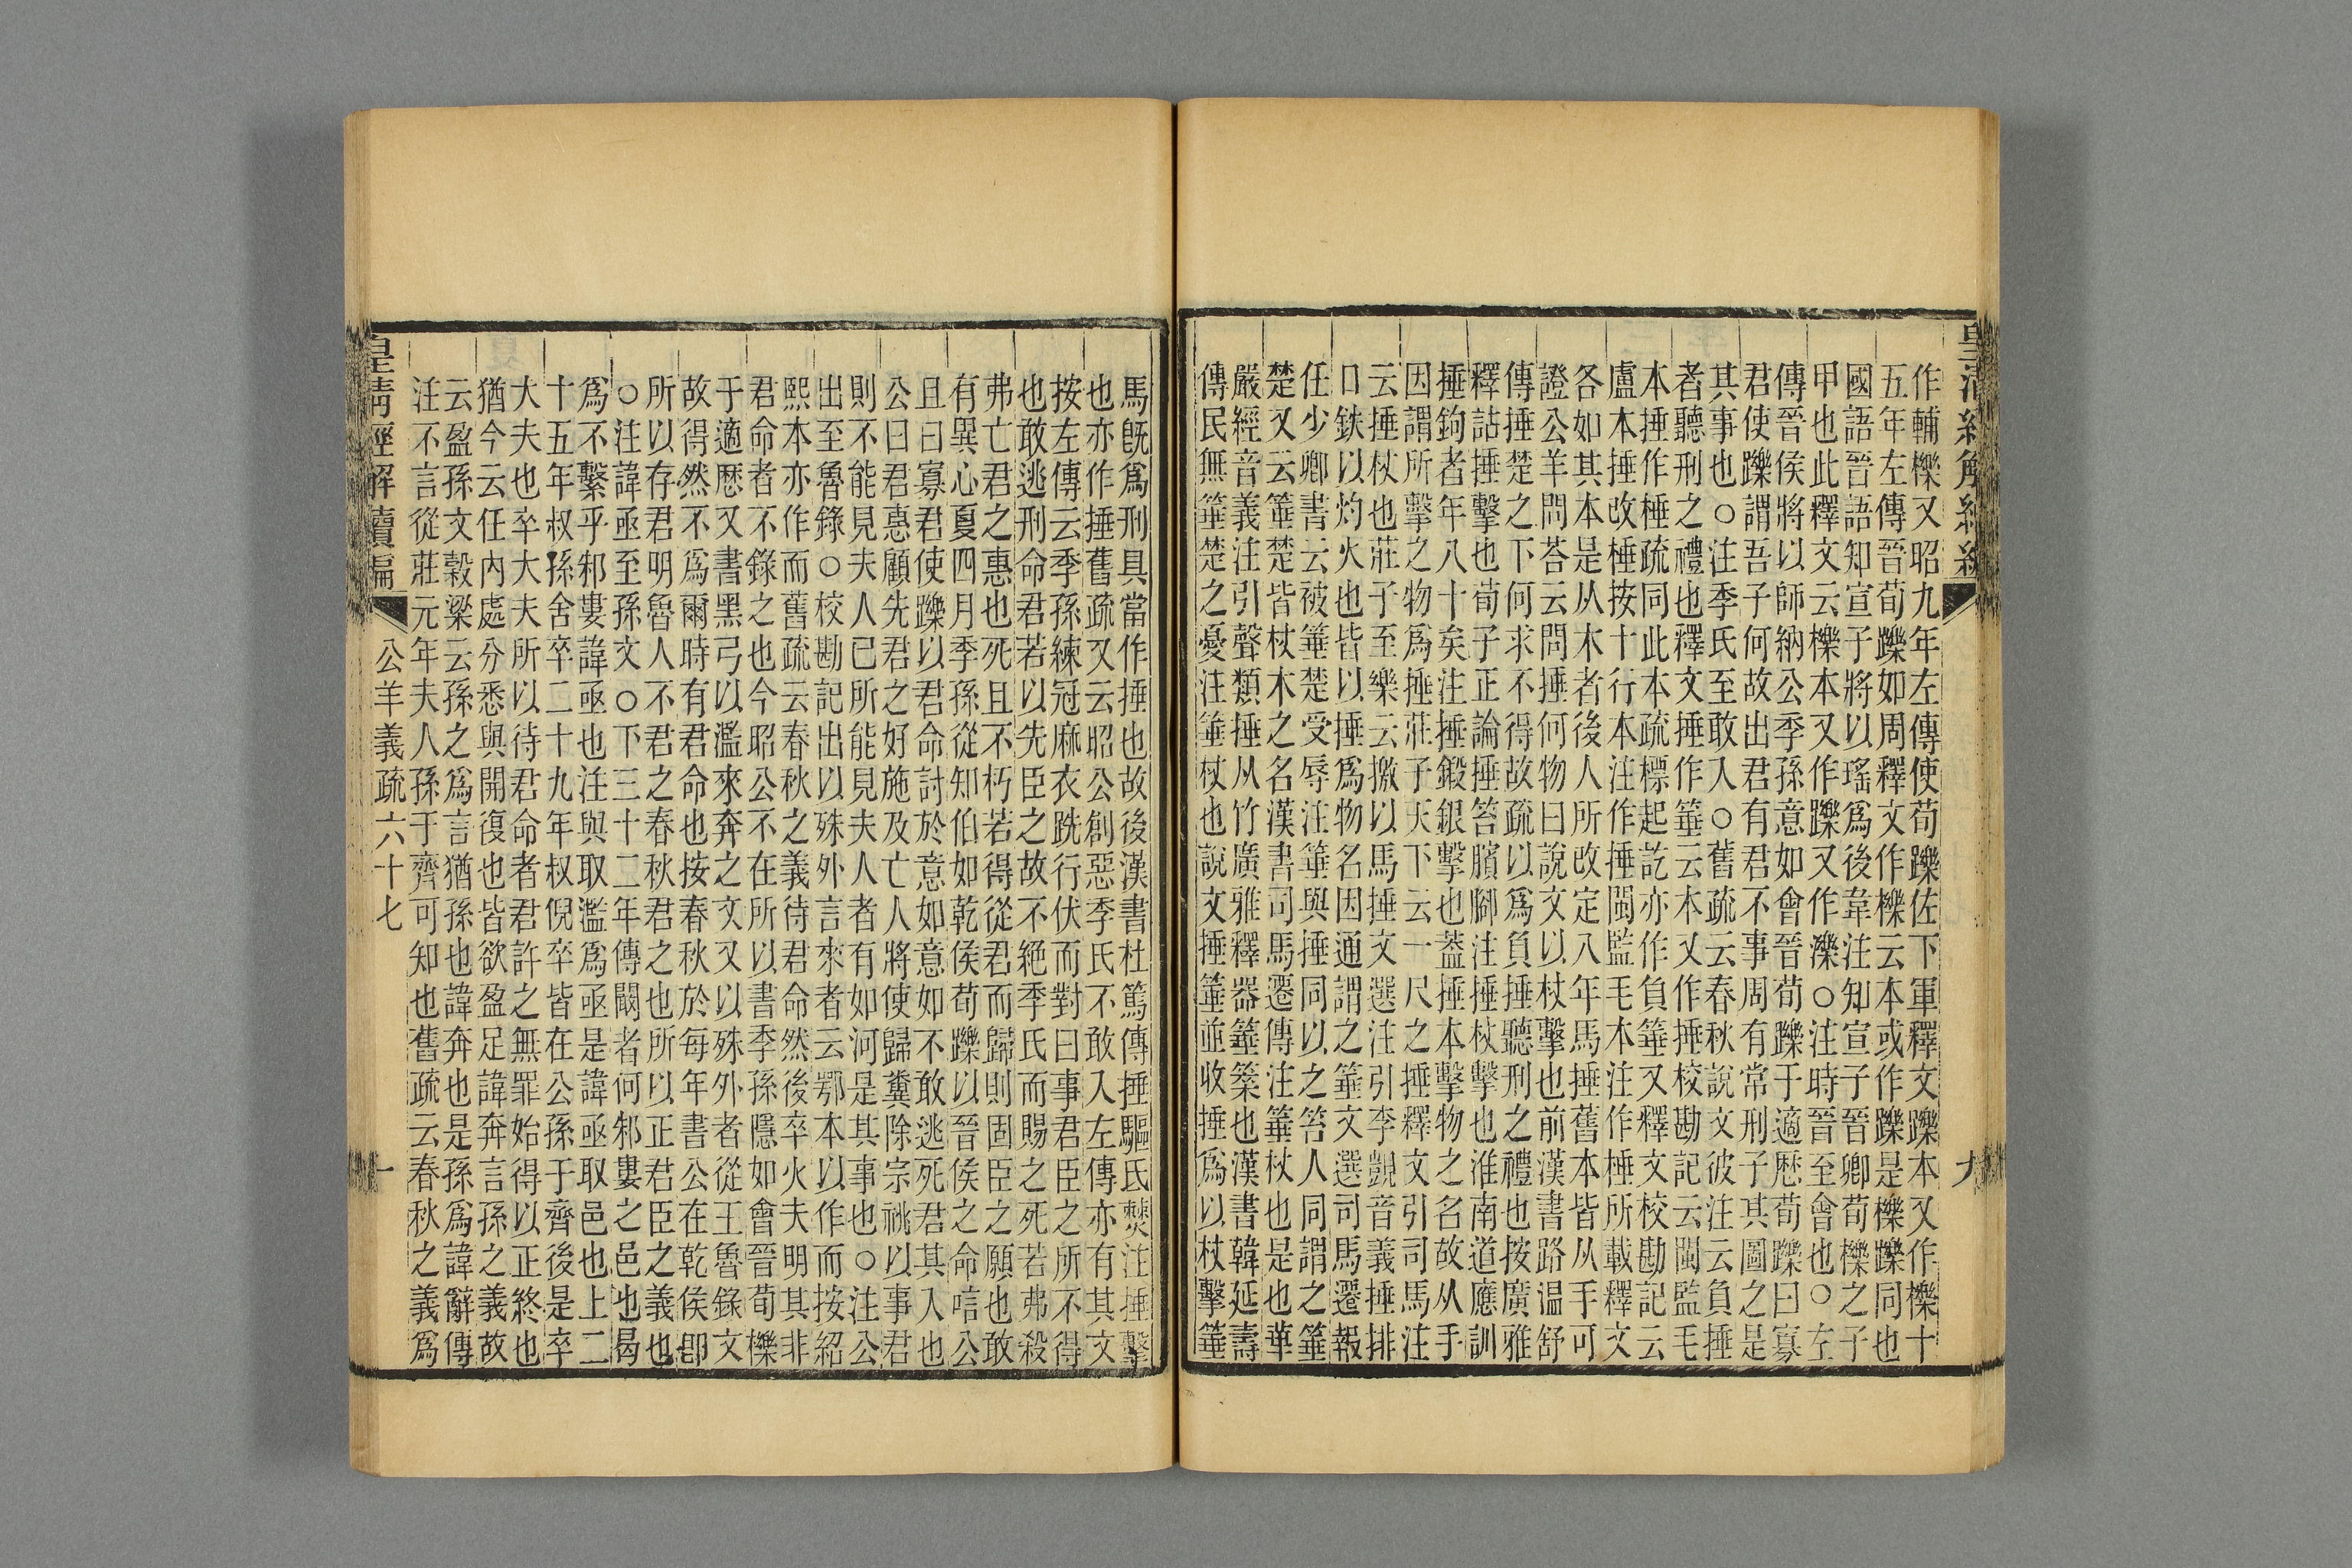 皇清經解續編
九
作輔櫟又昭九年左傳使荀躒佐下軍釋文躒本又作櫟十
五年左傳晉荀躒如周釋文作櫟云本或作躒是櫟躒同也
國語晉語知宣子將以瑤爲後韋注知宣子晉卿荀櫟之子
甲也此釋文云櫟本又作躒又作濼○注時晉至會也○左
傳晉侯將以師納公季孫意如會晉荀躒于適厯荀躒曰寡
君使躒謂吾子何故出君有君不事周有常刑子其圖之是
其事也○注季氏至敢入○舊疏云春秋說文彼注云負捶
者聽刑之禮也釋文捶作箠云本又作捶校勘記云閩監毛
本捶作棰疏同此本疏標起訖亦作負箠又釋文校勘記云
盧本捶改棰按十行本注作捶閩監毛本注作棰所載釋文
各如其本是从木者後人所改定八年馬捶舊本皆从手可
證公羊問荅云問捶何物曰說文以杖擊也前漢書路温舒
傳捶楚之下何求不得故疏以爲負捶聽刑之禮也按廣雅
釋詁捶擊也荀子正論捶笞臏腳注捶杖擊也淮南道應訓
捶鉤者年八十矣注捶鍛銀擊也葢捶本擊物之名故从手
因謂所擊之物爲捶莊子天下云一尺之捶釋文引司馬注
云捶杖也莊子至樂云撽以馬捶文選注引李覬音義捶排
口鈇以灼火也皆以捶爲物名因通謂之箠文選司馬遷報
任少卿書云被箠楚受辱注箠與捶同以之笞人同謂之箠
楚又云箠楚皆杖木之名漢書司馬遷傳注箠杖也是也華
嚴經音義注引聲類捶从竹廣雅釋器箠䇲也漢書韓延壽
傳民無箠楚之憂注箠杖也說文捶箠並收捶爲以杖擊箠
馬旣爲刑具當作捶也故後漢書杜篤傳捶驅氐僰注捶擊
也亦作捶舊疏又云昭公創惡季氏不敢入左傳亦有其文
按左傳云季孫練冠麻衣跣行伏而對曰事君臣之所不得
也敢逃刑命君若以先臣之故不絕季氏而賜之死若弗殺
弗亡君之惠也死且不朽若得從君而歸則固臣之願也敢
有異心夏四月季孫從知伯如乾侯荀躒以晉侯之命唁公
且曰寡君使躒以君命討於意如意如不敢逃死君其入也
公曰君惠顧先君之好施及亡人將使歸糞除宗祧以事君
則不能見夫人已所能見夫人者有如河是其事也○注公
出至魯錄○校勘記出以殊外言來者云鄂本以作而按紹
熙本亦作而舊疏云春秋之義待君命然後卒火夫明其非
君命者不錄之也今昭公不在所以書季孫隱如會晉荀櫟
于適厯又書黑弓以濫來奔之文又以殊外者從王魯錄文
故得然不爲爾時有君命也按春秋於每年書公在乾侯卽
所以存君明魯人不君之春秋君之也所以正君臣之義也
○注諱亟至孫文○下三十二年傳闞者何邾婁之邑也曷
爲不繫乎邾婁諱亟也注與取濫爲亟是諱亟取邑也上二
十五年叔孫舍卒二十九年叔倪卒皆在公孫于齊後是卒
大夫也卒大夫所以待君命者君許之無罪始得以正終也
猶今云任內處分悉與開復也皆欲盈足諱奔言孫之義故
云盈孫文穀梁云孫之爲言猶孫也諱奔也是孫爲諱辭傳
注不言從莊元年夫人孫于齊可知也舊疏云春秋之義爲
皇清經解續編
公羊義疏六十七
一